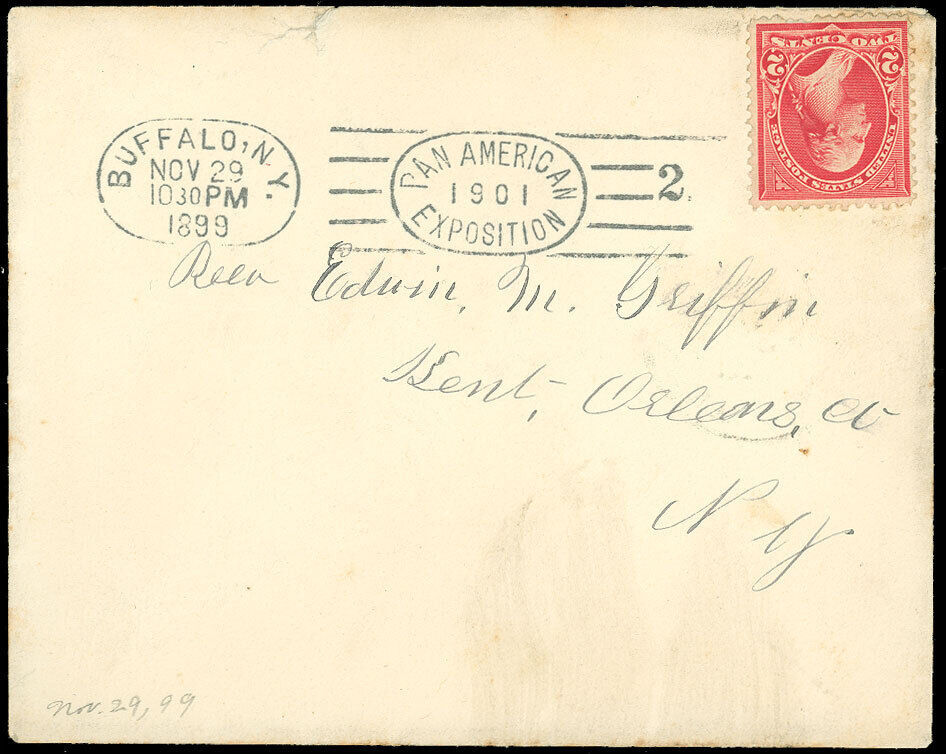 BUFFALO, N.Y.
NOV 29
10 30 PM
1899
PAN AMERICAN
1901
EXPOSITION
2
TWO CENTS
2 2
UNITED STATES POSTAGE
Edwin. M. Griffin
Kent, Orleans, Co
N Y
Nov. 29, 99